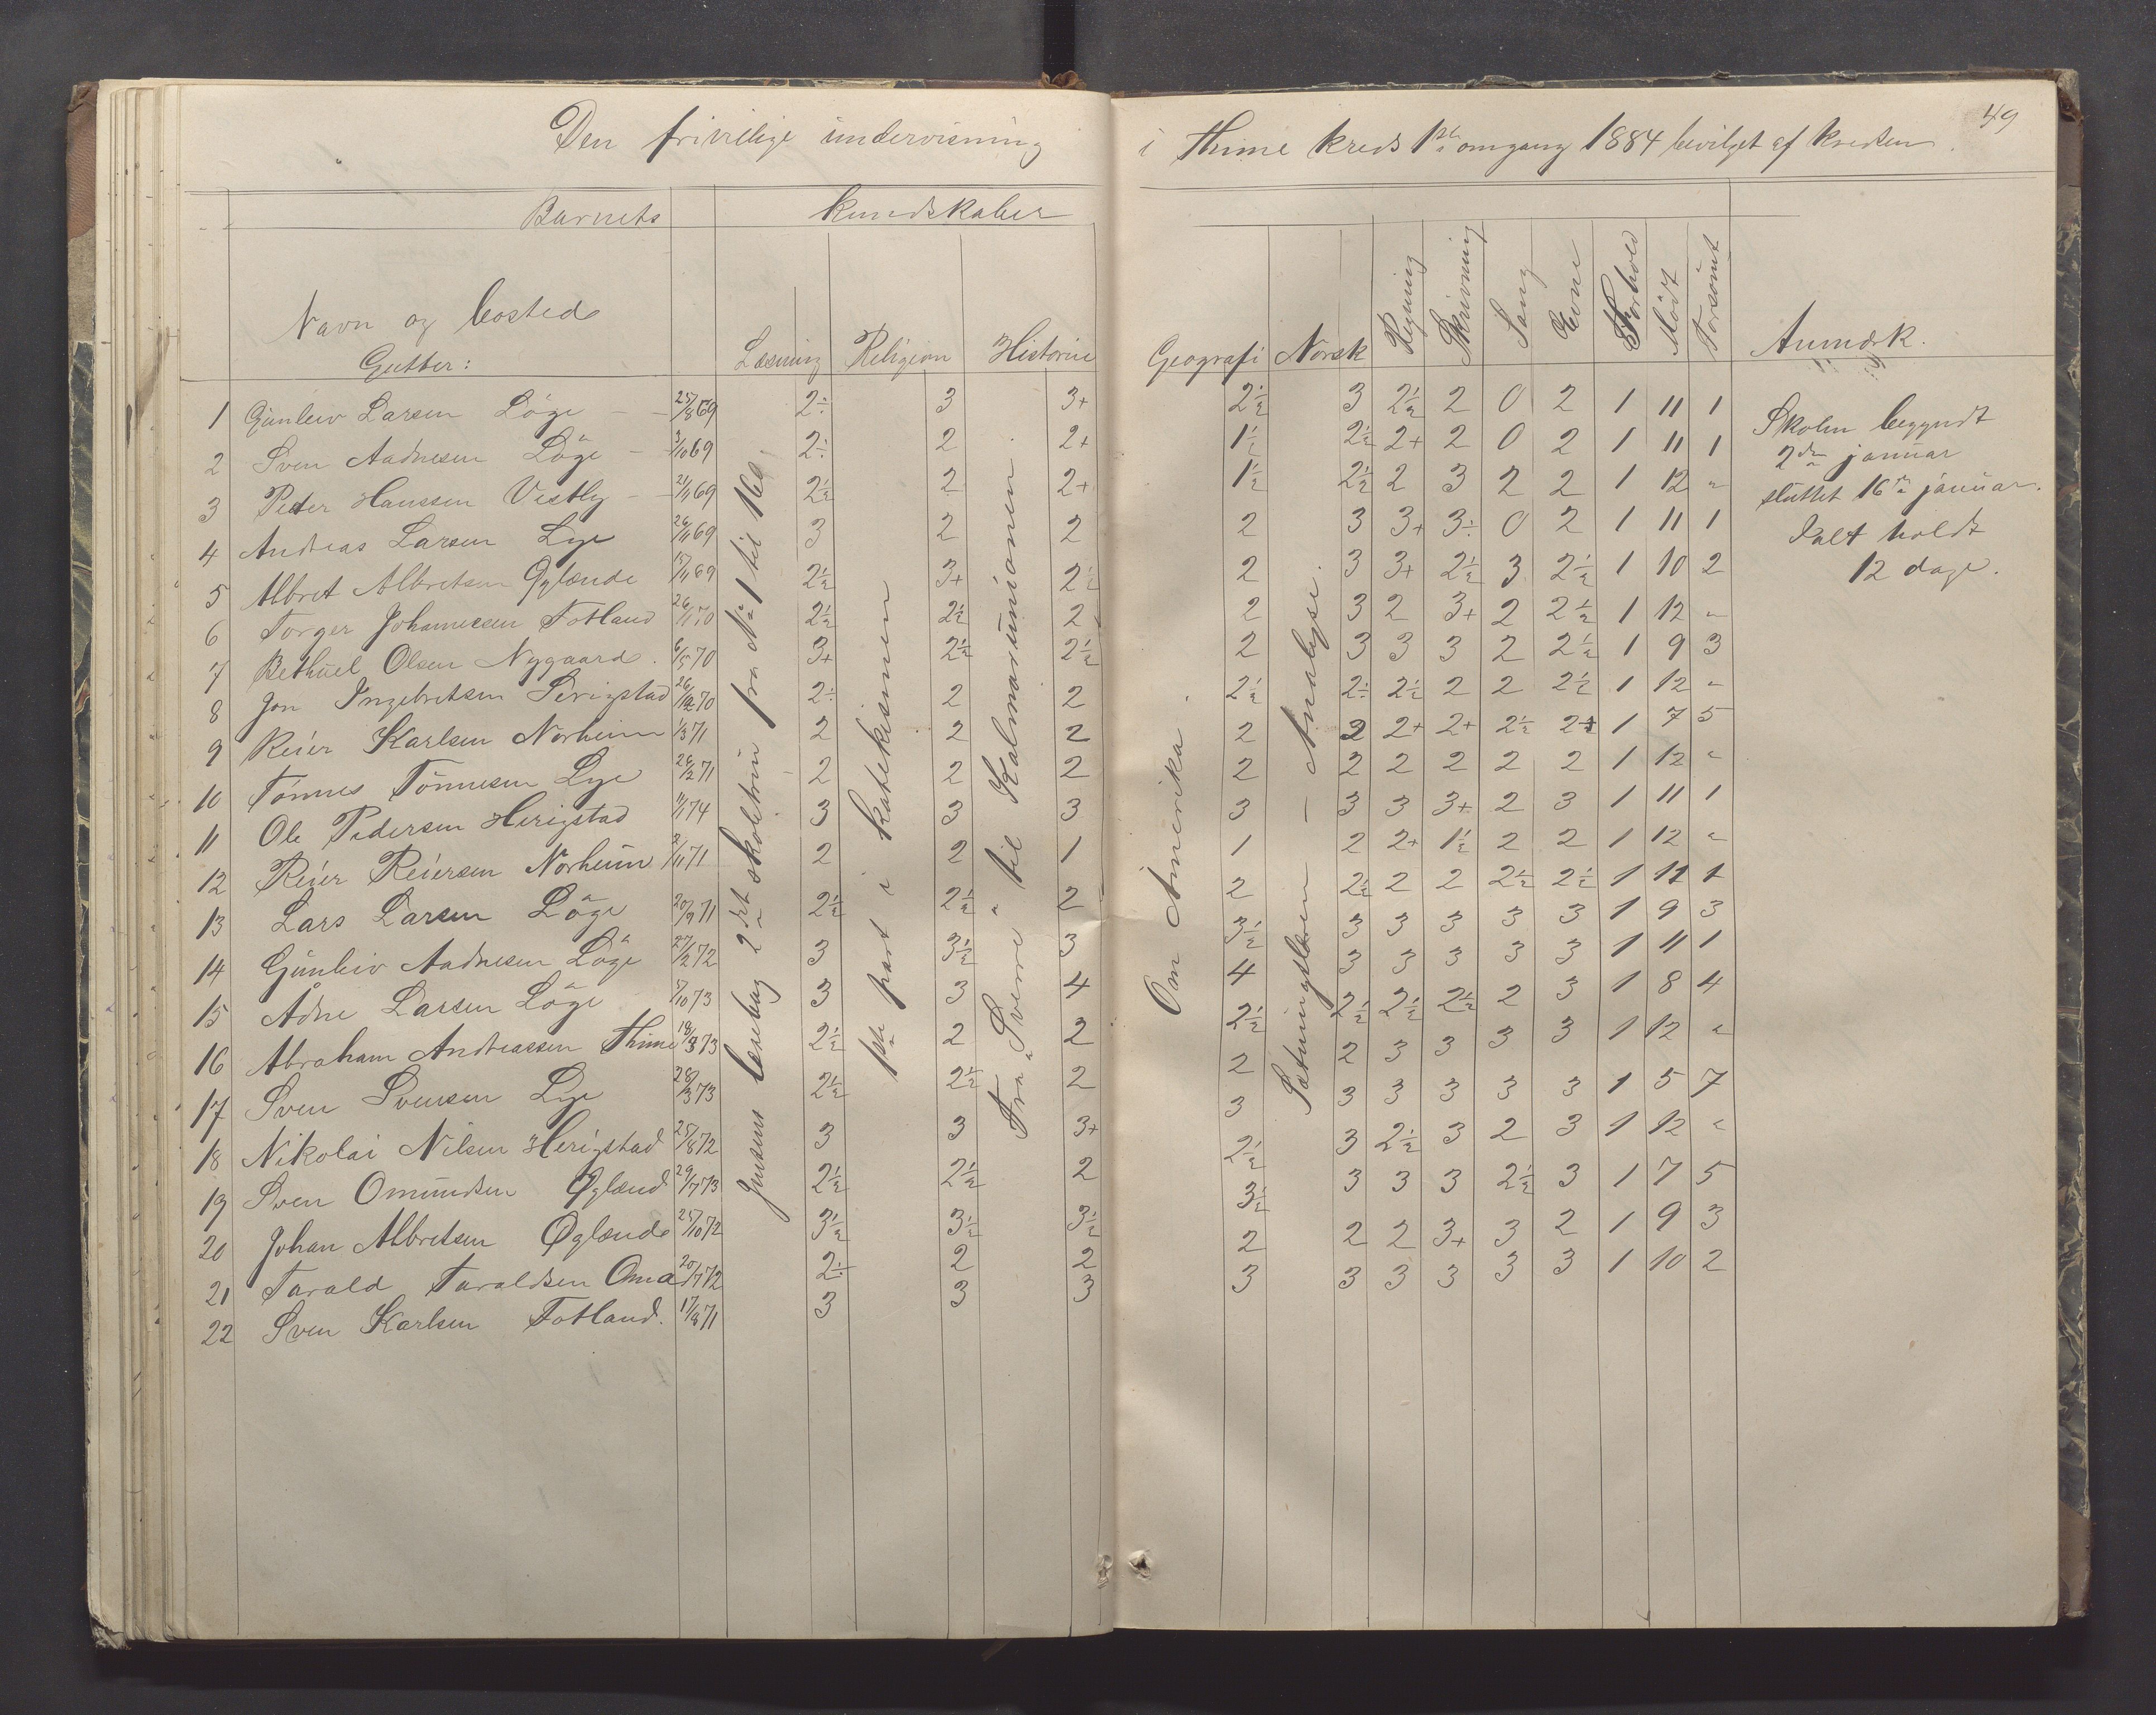 49
Den frivillige undervisning i Thime kreds 1ste omgang 1884 bevilget af kredsen.
Barnets kundskaber
Navn og bosted
Gutter:
Læsning Religion Historie Geografi Norsk Regning Skrivning Sang Evne Forhold Mødt Forsømt Anmærk.
Jensens læsebog 2det skoletrin fra No 1 til 160.
1ste part i katekismen
Fra Sverre til Kalmarunionen.
Om Amerika.
Sætningslæren — Analyse.
1 Gunleiv Larsen Löge 25/8 69 2÷ 3 3+ 2½ 3 2½ 2 0 2 1 11 1
2 Sven Aadnesen Löge 3/10 69 2÷ 2 2+ 1½ 2½ 2+ 2 0 2 1 11 1
3 Peder Hanssen Vestly 21/11 69 2½ 2 2+ 1½ 2½ 2 3 2 2 1 12 "
4 Andreas Larsen Lye 26/11 69 3 2 2 2 3 3+ 3÷ 0 2 1 11 1
5 Albret Albretsen Øglænde 15/11 69 2½ 3+ 2½ 2 3 3+ 2½ 3 2½ 1 10 2
6 Torger Johannesen Fotland 26/1 70 2½ 2½ 2 2 3 2 3+ 2 2½ 1 12 "
7 Bethuel Olsen Nygaard. 6/5 70 3+ 2½ 2½ 2 3 3 3 2 2½ 1 9 3
8 Jon Ingebretsen Serigstad 26/12 70 2÷ 2 2 2½ 2÷ 2½ 2 2 2½ 1 12 "
9 Reier Karlsen Norheim 1/3 71 2 2 2 2 2 2+ 2+ 2½ 2+ 1 7 5
10 Tönnes Tönnesen Lye 26/2 71 2 2 2 2 2 2 2 2 2 1 12 "
11 Ole Pedersen Herigstad 11/1 74 3 3 3 3 3 3 3+ 2 3 1 11 1
12 Reier Reiersen Norheim 2/11 71 2 2 1 1 2 2+ 1½ 2 2 1 12 "
13 Lars Larsen Löge 20/9 71 2½ 2½ 2 2 2½ 2 2 2½ 2½ 1 11 1
14 Gunleiv Aadnesen Löge 27/2 72 3 3½ 3 3½ 3 3 3 3 3 1 9 3
15 Ådne Larsen Löge 7/10 73 3 3 4 4 3 3 3 3 3 1 11 1
16 Abraham Andreassen Thime 18/3 73 2½ 2 2 2½ 2½ 2½ 2½ 2 3 1 8 4
17 Sven Svensen Lye 28/3 73 2½ 2½ 2 2 2 3 3 3 3 1 12 "
18 Nikolai Nilsen Herigstad 25/8 72 3 3 3+ 3 3 3 3 3 3 1 5 7
19 Sven Omundsen Øglænd 29/7 73 2½ 2½ 2 2½ 3 2½ 3 2 3 1 12 "
20 Johan Albretsen Øglænde 25/10 72 3½ 3½ 3½ 3½ 3 3 3 2½ 3 1 7 5
21 Tarald Taraldsen Oma 20/7 72 2÷ 2 2 2 2 2 3+ 3 2 1 9 3
22 Sven Karlsen Fotland. 17/8 71 3 3 3 3 3 3 3 3 3 1 10 2
Skolen begyndt
2den januar
sluttet 16de januar.
Ialt holdt
12 dage.